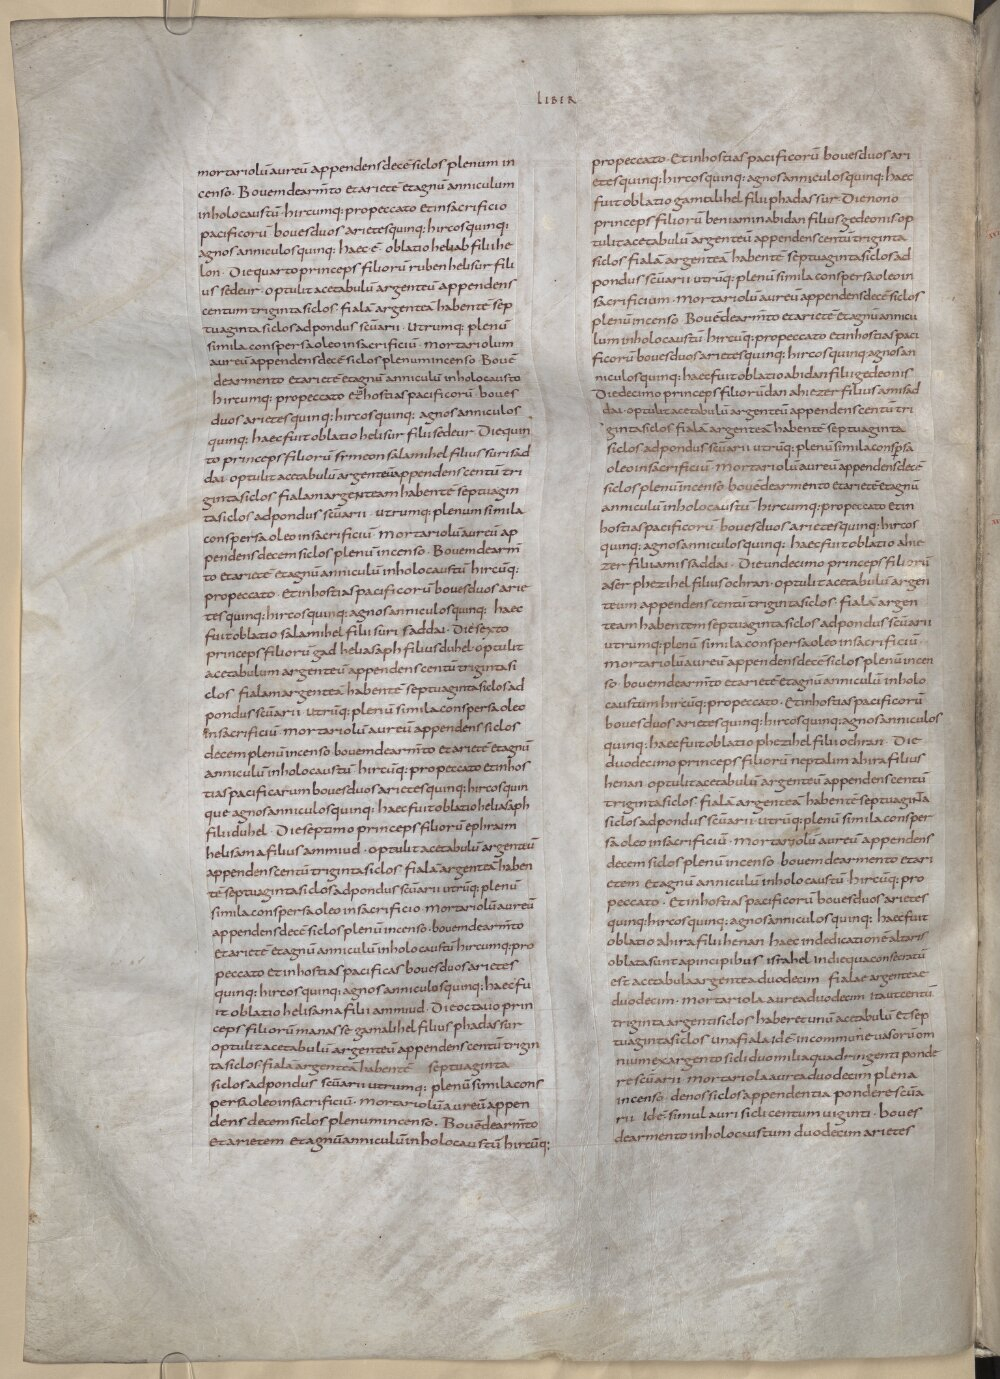 LIBER
mortariolū aureū appendens decē siclos plenum in
censo · Bouem dearm̄to et arietē et agnū anniculum
in holocaustū · hircumq; pro peccato et in sacrificio
pacificorū boues duos arietes quinq; hircos quinq;
agnos anniculos quinq; haec ē oblatio heliab filii he
lon · Die quarto princeps filiorū ruben helisur fili
us sedeur · optulit acetabulū argenteū appendens
centum triginta siclos · fialā argenteā habentē sep
tuaginta siclos ad pondus sc̄uarii · utrumq; plenū
simila conspersa oleo in sacrificiū · mortariolum
aureū appendens decē siclos plenum incenso Bouē
de armento et arietē et agnū anniculū in holocausto
hircumq; pro peccato et hostias pacificorū · boues
duos arietes quinq; hircos quinq; agnos anniculos
quinq; haec fuit oblatio helisur filii sedeur Die quin
to princeps filiorū symeon salamihel filius surisad
dai · optulit acetabulū argenteū appendens centū tri
ginta siclos fialam argenteam habentē septuagin
ta siclos ad pondus sc̄uarii · utrumq; plenum simila
conspersa oleo in sacrificiū · mortariolū aureū ap
pendens decem siclos plenū incenso · Bouem dearm̄
to et arietē et agnū anniculū in holocaustū hircūq;
pro peccato · Et in hostias pacificorū boues duos arie
tes quinq; hircos quinq; agnos anniculos quinq; haec
fuit oblatio salamihel filii suri saddai · Die sexto
princeps filiorū gad heliasaph filius duhel · optulit
acetabulum argenteū appendens centū triginta si
clos fialam argenteā habentē septuaginta siclos ad
pondus sc̄uarii · utrūq; plenū simila conspersa oleo
in sacrificiū · mortariolū aureū appendens siclos
decem plenū incenso bouem dearm̄to et arietē et agnū
anniculū in holocaustū hircūq; pro peccato et in hos
tias pacificarum boues duos arietes quinq; hircos quin
que agnos anniculos quinq; haec fuit oblatio heliasaph
filii duhel · Die septimo princeps filiorū ephraim
helisama filius ammiud · optulit acetabulū argenteū
appendens centū triginta siclos fialā argenteā haben
tē septuaginta siclos ad pondus sc̄uarii utrūq; plenū
simila conspersa oleo in sacrificio mortariolū aureū
appendens decē siclos plenū incenso · bouem dearm̄to
et arietē et agnū anniculū in holocaustū hircumq; pro
peccato et in hostias pacificas boues duos arietes
quinq; hircos quinq; agnos anniculos quinq; haec fu
it oblatio helisama filii ammiud · Die octauo prin
ceps filiorū manasse gamalihel filius phadassur
optulit acetabulū argenteū appendens centū trigin
ta siclos · fialā argenteā habentē septuaginta
siclos ad pondus sc̄uarii utrumq; plenū simila cons
persa oleo in sacrificiū · mortariolū aureū appen
dens decem siclos plenum incenso · Bouē dearm̄to
et arietem et agnū anniculū in holocaustū hircūq;
pro peccato · Et in hostias pacificorū boues duos ari
etes quinq; hircos quinq; agnos anniculos quinq; haec
fuit oblatio gamalihel filii phadassur Die nono
princeps filiorū beniamin abidan filius gedeonis op
tulit acetabulū argenteū appendens centū triginta
siclos fialā argenteā habentē septuaginta siclos ad
pondus sc̄uarii utrūq; plenū simila conspersa oleo in
sacrificium · mortariolū aureū appendens decē siclos
plenū incenso Bouē dearm̄to et arietē et agnū annicu
lum in holocaustū hircūq; pro peccato et in hostias paci
ficorū boues duos arietes quinq; hircos quinq agnos an
niculos quinq; haec fuit oblatio abidan filii gedeonis
Die decimo princeps filiorū dan ahiezer filius amisad
dai · optulit acetabulū argenteū appendens centū tri
ginta siclos fialā argenteā habentē septuaginta
siclos ad pondus sc̄uarii utrūq; plenū simila conspsa
oleo in sacrificiū mortariolū aureū appendens decē
siclos plenū incenso bouē dearmento et arietē et agnū
anniculū in holocaustū hircumq; pro peccato et in
hostias pacificorū boues duos arietes quinq; hircos
quinq; agnos anniculos quinq; haec fuit oblatio ahie
zer filii amissaddai · Die undecimo princeps filiorū
aser phezihel filius ochran · optulit acetabulū argen
teum appendens centū triginta siclos · fialā argen
team habentem septuaginta siclos ad pondus sc̄uarii
utrumq; plenū simila conspersa oleo in sacrificiū ·
mortariolū aureū appendens decē siclos plenū incen
so · bouem dearm̄to et arietē et agnū anniculū in holo
caustum hircūq; pro peccato · Et in hostias pacificorū
boues duos arietes quinq; hircos quinq; agnos anniculos
quinq; haec fuit oblatio phezihel filii ochran · Die
duodecimo princeps filiorū neptalim ahira filius
henan optulit acetabulū argenteū appendens centū
triginta siclos fialā argenteā habentē septuaginta
siclos ad pondus sc̄uarii · utrūq; plenū simila consper
sa oleo in sacrificiū · mortariolū aureū appendens
decem siclos plenū incenso bouem dearmento et ari
etem et agnū anniculū in holocaustū hircūq; pro
peccato · Et in hostias pacificorū boues duos arietes
quinq; hircos quinq; agnos anniculos quinq; haec fuit
oblatio ahira filii henan haec in dedicationē altaris
oblata sunt a principibus israhel in die qua consecratū
est acetabula argentea duodecim fialae argenteae
duodecim · mortariola aurea duodecim ita ut centū
triginta argenti siclos haberet unū acetabulū et sep
tuaginta siclos una fiala idē in commune uasorū om
nium ex argento sicli duo milia quadringenti ponde
re sc̄uarii mortariola aurea duodecim plena
incenso · denos siclos appendentia pondere sc̄ua
rii idē simul auri sicli centum uiginti · boues
dearmento in holocaustum duodecim arietes